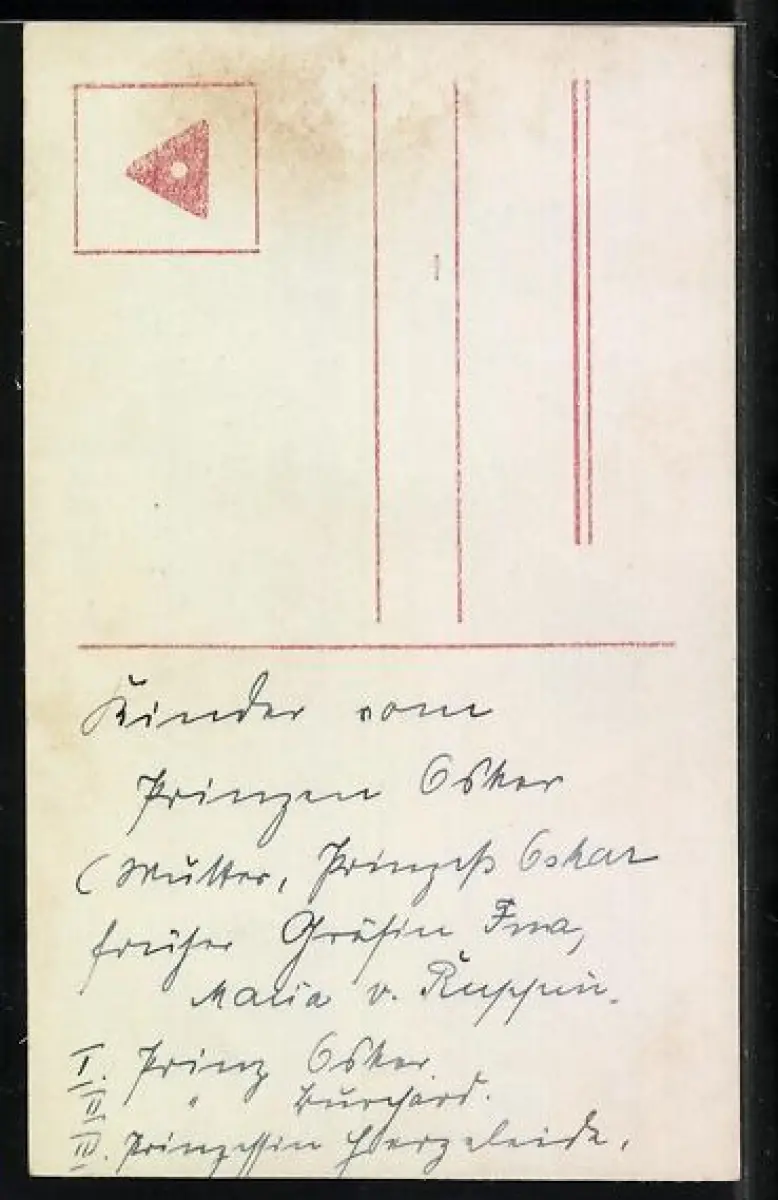 Kinder vom
Prinzen Oskar
(Mutter, Prinzeß Oskar
früher Gräfin Ina,
Maria v. Ruppin.
I. Prinz Oskar
II " Burchard.
III. Prinzessin Herzeleide.